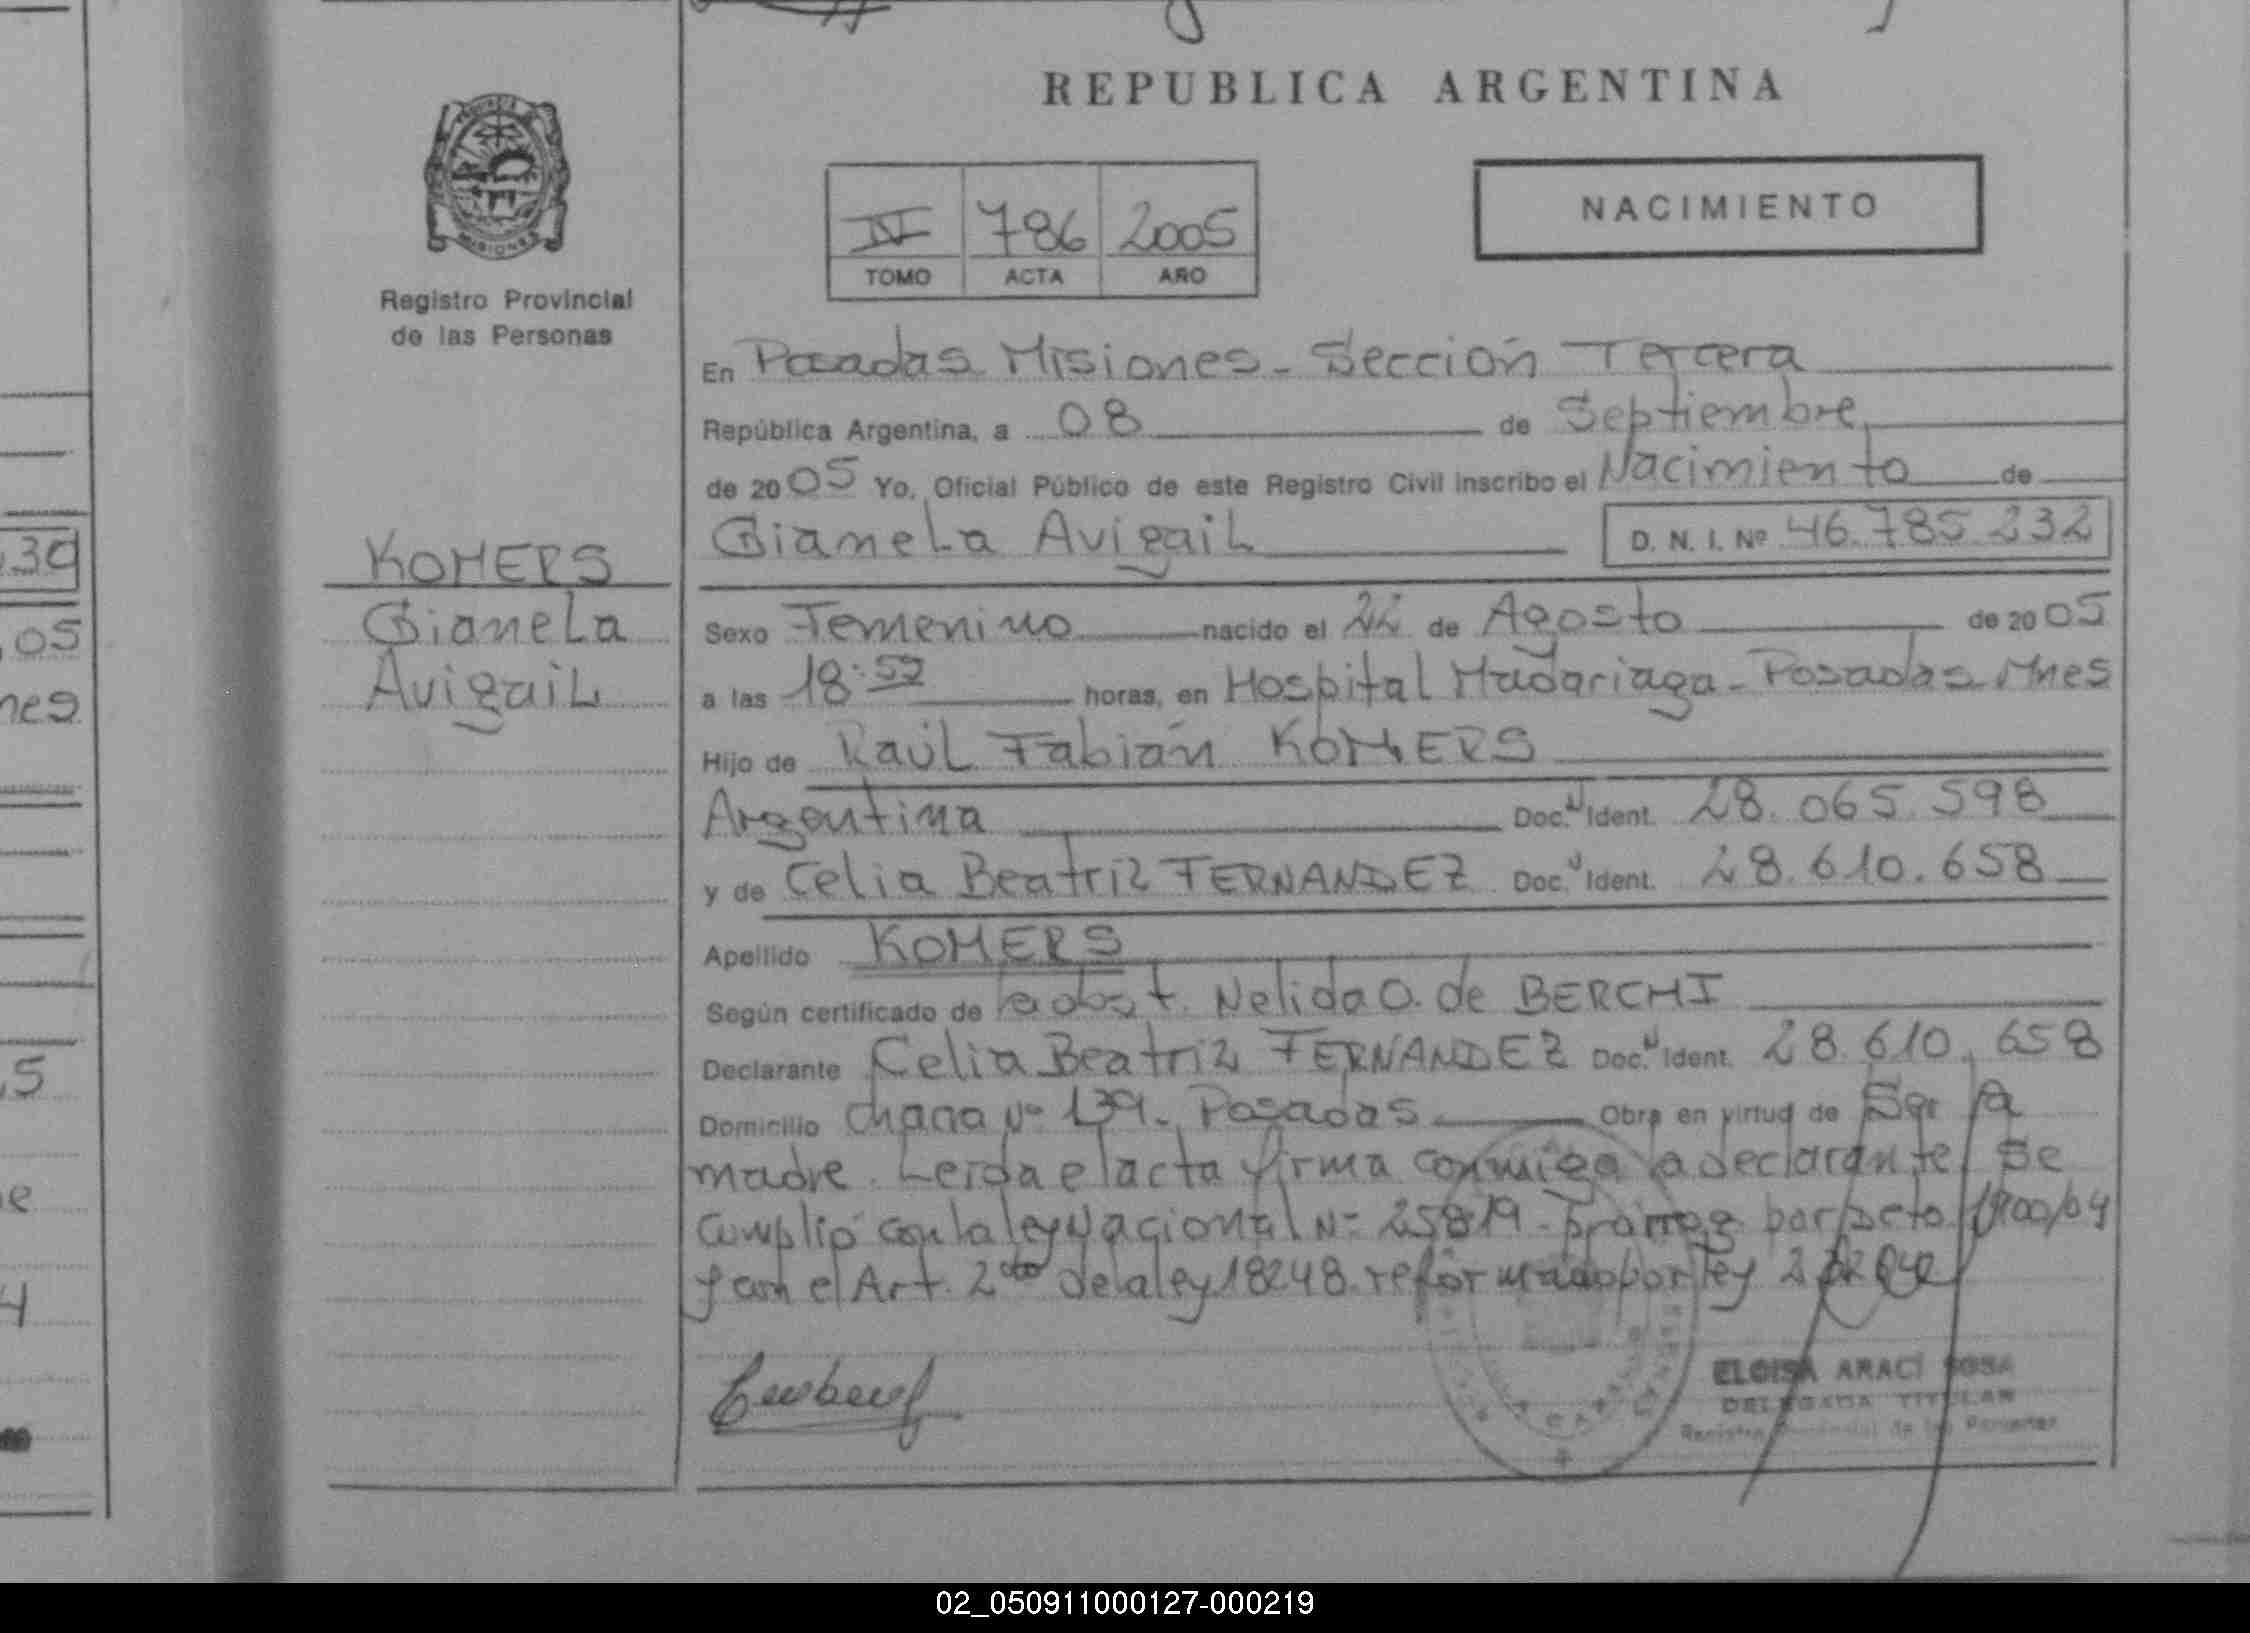 REPUBLICA ARGENTINA
NACIMIENTO
IV 786 2005
TOMO ACTA AÑO
PROVINCIA
MISIONES
Registro Provincial
de las Personas
En Posadas Misiones - Sección Tercera
República Argentina, a 08 de Septiembre
de 2005 Yo, Oficial Público de este Registro Civil inscribo el Nacimiento de
Gianela Avigail D. N. I. Nº 46.785.232
KOMERS
Gianela
Avigail
Sexo Femenino nacido el 22 de Agosto de 2005
a las 18:57 horas, en Hospital Madariaga - Posadas Mnes
Hijo de Raúl Fabián KOMERS
Argentina Doc. Ident. 28.065.598
y de Celia Beatriz FERNANDEZ Doc. Ident. 28.610.658
Apellido KOMERS
Según certificado de la obst. Nelida O. de BERCHI
Declarante Celia Beatriz FERNANDEZ Doc. Ident. 28.610.658
Domicilio chacra Nº 139 - Posadas Obra en virtud de Ser la
madre. Leida el acta firma conmigo la declarante, Se
cumplió con la ley Nacional Nº 25819 - prorrog por Dcto.
y con el Art. 2do de la ley 18248 reformado por ley
ELOISA ARACI SOSA
DELEGADA TITULAR
Registro Provincial de las Personas
30
05
nes
5
e
4
02_050911000127-000219